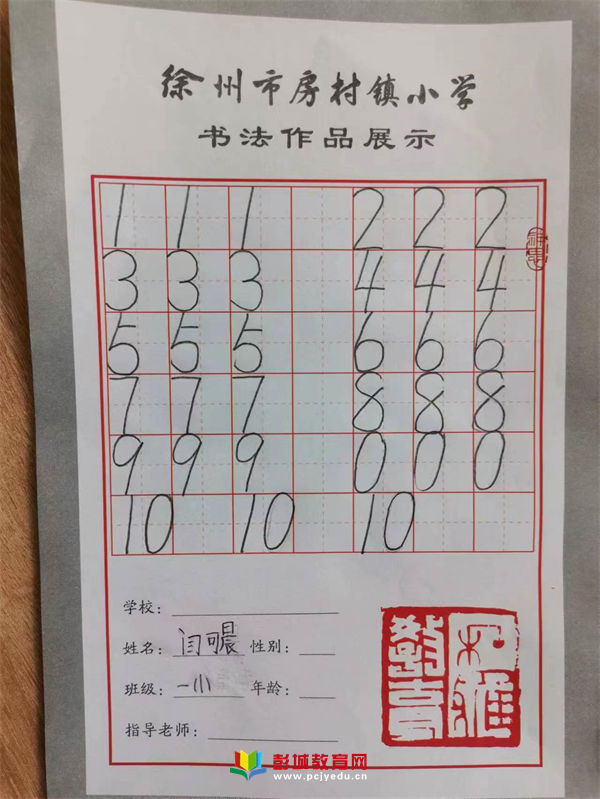 徐州市房村镇小学
书法作品展示
1 1 1 2 2 2
3 3 3 4 4 4
5 5 5 6 6 6
7 7 7 8 8 8
9 9 9 0 0 0
10 10 10
学校:
姓名: 闫可晨 性别:
班级: 一小 年龄:
指导老师:
彭城教育网
www.pcjyedu.cn